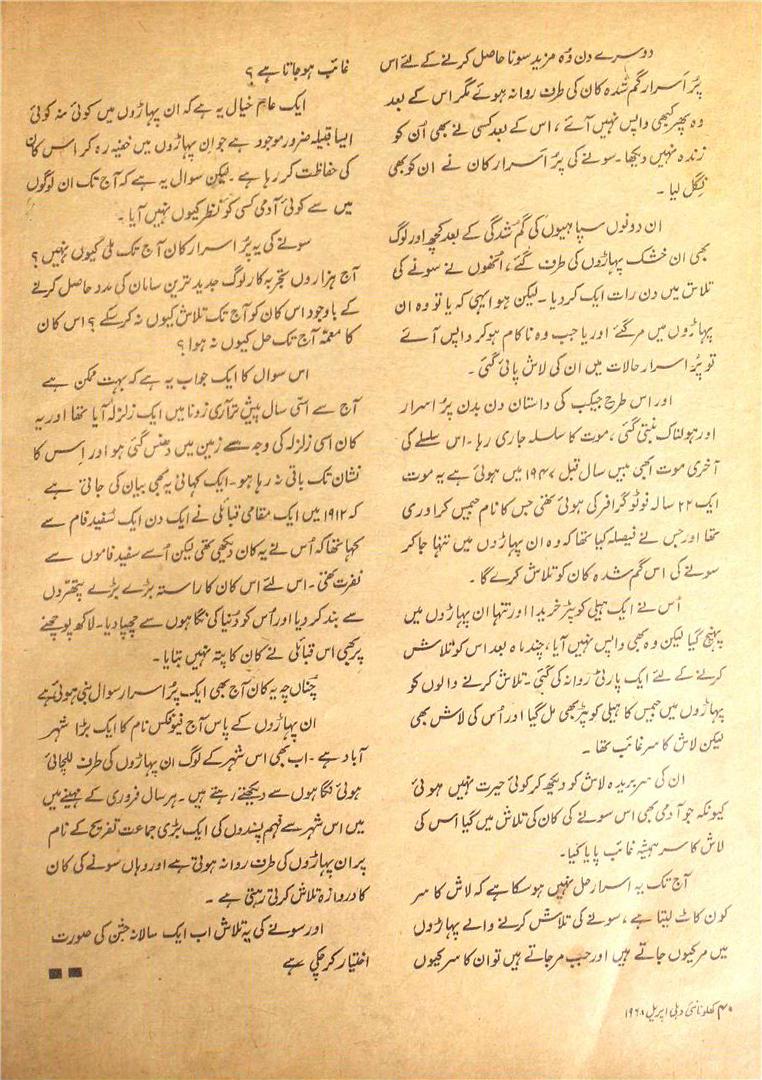 دوسرے دن وہ مزید سونا حاصل کرنے کے لئے اس
پُر اَسرار گم شدہ کان کی طرف روانہ ہوئے مگر اس کے بعد
وہ پھر کبھی واپس نہیں آئے ، اس کے بعد کسی نے بھی اُن کو
زندہ نہیں دیکھا ۔ سونے کی پُر اَسرار کان نے ان کو بھی
نِگل لیا ۔
ان دونوں سپاہیوں کی گم شدگی کے بعد کچھ اور لوگ
بھی ان خشک پہاڑوں کی طرف گئے ، انھوں نے سونے کی
تلاش میں دن رات ایک کر دیا ۔ لیکن ہوا یہی کہ یا تو وہ ان
پہاڑوں میں مر گئے اور یا جب وہ ناکام ہو کر واپس آئے
تو پُر اسرار حالات میں ان کی لاش پائی گئی ۔
اور اس طرح جیکب کی داستان دن بدن پُر اسرار
اور ہولناک بنتی گئی ، موت کا سلسلہ جاری رہا ۔ اس سلسلے کی
آخری موت ابھی بیس سال قبل ۱۹۴۷ میں ہوئی ہے یہ موت
ایک ۲۲ سالہ فوٹو گرافر کی ہوئی تھی جس کا نام جیمس کراوری
تھا اور جس نے فیصلہ کیا تھا کہ وہ ان پہاڑوں میں تنہا جا کر
سونے کی اس گم شدہ کان کو تلاش کرے گا ۔
اُس نے ایک ہیلی کوپٹر خریدا اور تنہا ان پہاڑوں میں
پہنچ گیا لیکن وہ بھی واپس نہیں آیا ، چند ماہ بعد اس کو تلاش
کرنے کے لئے ایک پارٹی روانہ کی گئی ۔ تلاش کرنے والوں کو
پہاڑوں میں جیمس کا ہیلی کوپٹر بھی مل گیا اور اُس کی لاش بھی
لیکن لاش کا سر غائب تھا ۔
ان کی سر بریدہ لاش کو دیکھ کر کوئی حیرت نہیں ہوئی
کیونکہ جو آدمی بھی اس سونے کی کان کی تلاش میں گیا اس کی
لاش کا سر ہمیشہ غائب پایا گیا ۔
آج تک یہ اسرار حل نہیں ہو سکا ہے کہ لاش کا سر
کون کاٹ لیتا ہے ، سونے کی تلاش کرنے والے پہاڑوں
میں مر کیوں جاتے ہیں اور جب مر جاتے ہیں تو ان کا سر کیوں
غائب ہو جاتا ہے ؟
ایک عام خیال یہ ہے کہ ان پہاڑوں میں کوئی نہ کوئی
ایسا قبیلہ ضرور موجود ہے جو اِن پہاڑوں میں خفیہ رہ کر اس کان
کی حفاظت کر رہا ہے ۔ لیکن سوال یہ ہے کہ آج تک ان لوگوں
میں سے کوئی آدمی کسی کو نظر کیوں نہیں آیا ۔
سونے کی یہ پُر اسرار کان آج تک ملی کیوں نہیں ؟
آج ہزاروں تجربہ کار لوگ جدید ترین سامان کی مدد حاصل کرنے
کے باوجود اس کان کو آج تک تلاش کیوں نہ کر سکے ؟ اس کان
کا معمّہ آج تک حل کیوں نہ ہوا ؟
اس سوال کا ایک جواب یہ ہے کہ بہت ممکن ہے
آج سے اسّی سال پیش تر آری زونا میں ایک زلزلہ آیا تھا اور یہ
کان اسی زلزلہ کی وجہ سے زمین میں دھنس گئی ہو اور اِس کا
نشان تک باقی نہ رہا ہو ۔ ایک کہانی یہ بھی بیان کی جاتی ہے
کہ ۱۹۱۲ میں ایک مقامی قبائلی نے ایک دن ایک سفید فام سے
کہا تھا کہ اُس نے یہ کان دیکھی تھی لیکن اُسے سفید فاموں سے
نفرت تھی ۔ اس لئے اس کان کا راستہ بڑے بڑے پتھروں
سے بند کر دیا اور اُس کو دُنیا کی نگاہوں سے چھپا دیا ۔ لاکھ پوچھنے
پر بھی اس قبائلی نے کان کا پتہ نہیں بتایا ۔
چُناں چہ یہ کان آج بھی ایک پُر اسرار سوال بنی ہوئی ہے
ان پہاڑوں کے پاس آج فیونکس نام کا ایک بڑا شہر
آباد ہے ۔ اب بھی اس شہر کے لوگ ان پہاڑوں کی طرف للچائی
ہوئی نگاہوں سے دیکھتے رہتے ہیں ۔ ہر سال فروری کے مہینے میں
میں اس شہر سے فہم پسندوں کی ایک بڑی جماعت تفریح کے نام
پر ان پہاڑوں کی طرف روانہ ہوتی ہے اور وہاں سونے کی کان
کا دروازہ تلاش کرتی رہتی ہے ۔
اور سونے کی یہ تلاش اب ایک سالانہ جشن کی صورت
اختیار کر چکی ہے
۴۰ کھلونا نئی دہلی اپریل ۱۹۶۸